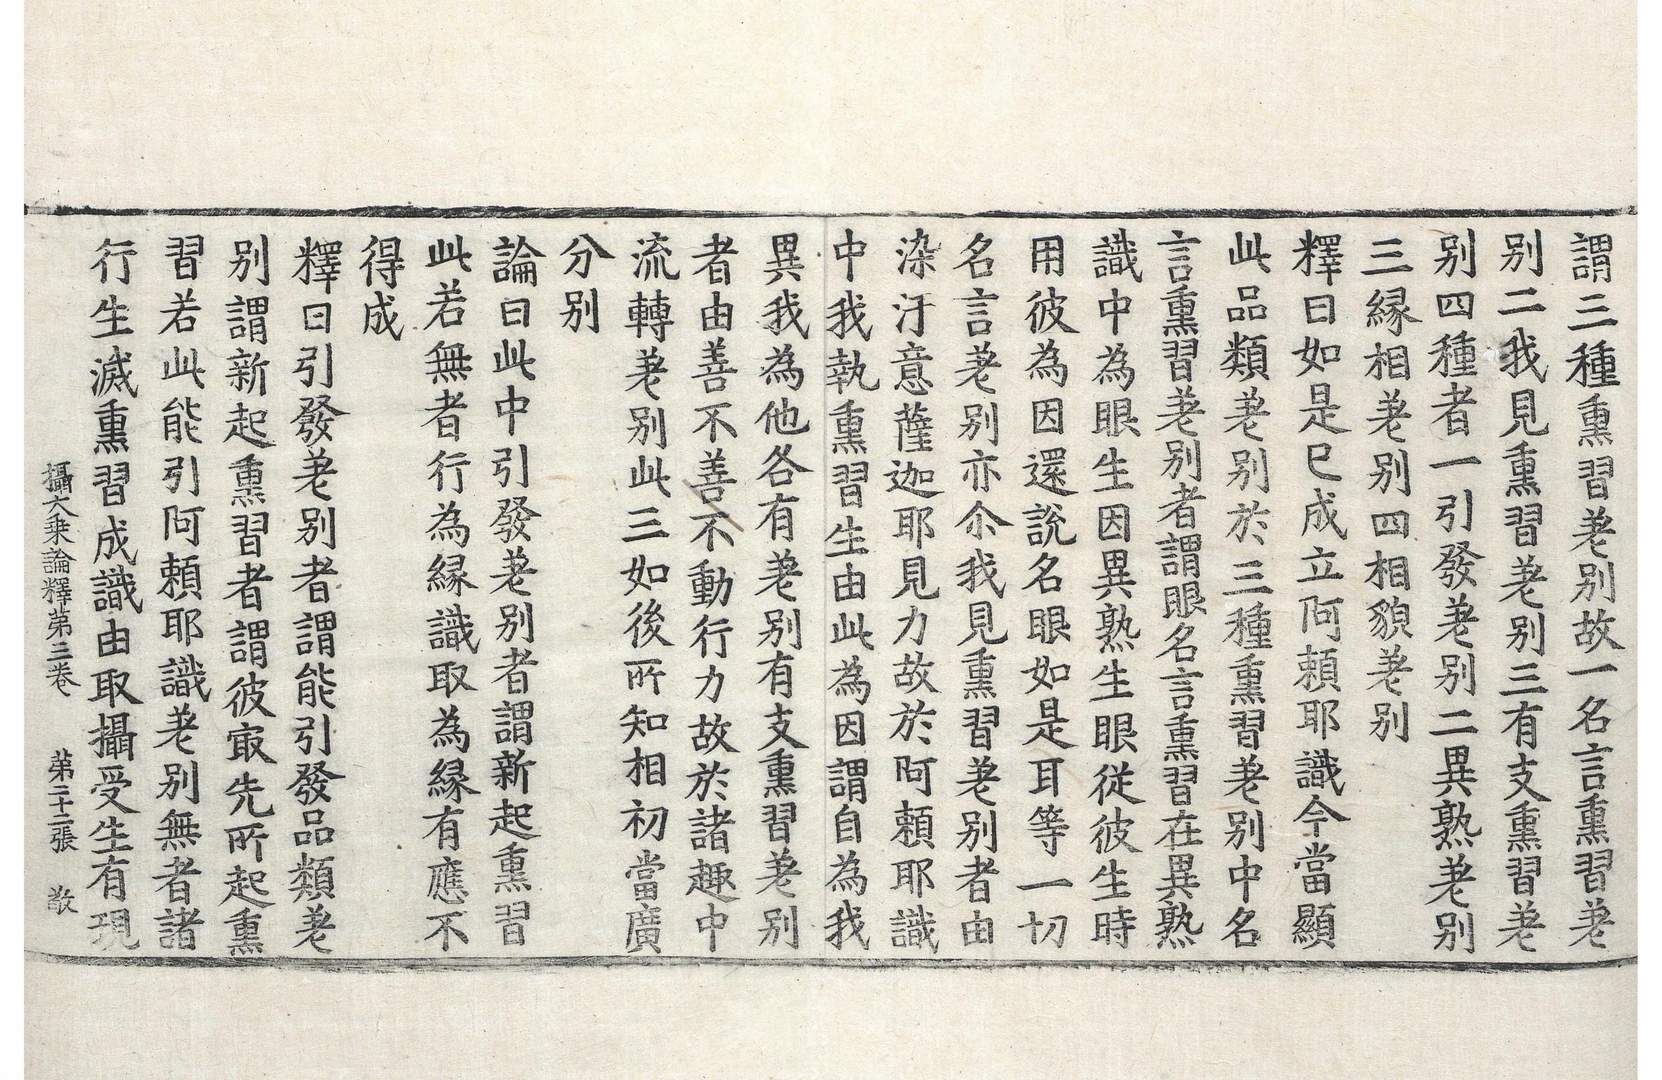 謂三種熏習差別故一名言熏習差
別二我見熏習差別三有支熏習差
別四種者一引發差別二異熟差別
三緣相差別四相貌差別
釋曰如是已成立阿賴耶識今當顯
此品類差別於三種熏習差別中名
言熏習差別者謂眼名言熏習在異熟
識中為眼生因異熟生眼從彼生時
用彼為因還說名眼如是耳等一切
名言差別亦尒我見熏習差別者由
染汙意薩迦耶見力故於阿賴耶識
中我執熏習生由此為因謂自為我
異我為他各有差別有支熏習差別
者由善不善不動行力故於諸趣中
流轉差別此三如後所知相初當廣
分別
論曰此中引發差別者謂新起熏習
此若無者行為緣識取為緣有應不
得成
釋曰引發差別者謂能引發品類差
別謂新起熏習者謂彼㝡先所起熏
習若此能引阿賴耶識差別無者諸
行生滅熏習成識由取攝受生有現
攝大乘論釋第三卷 第二十二張 敬